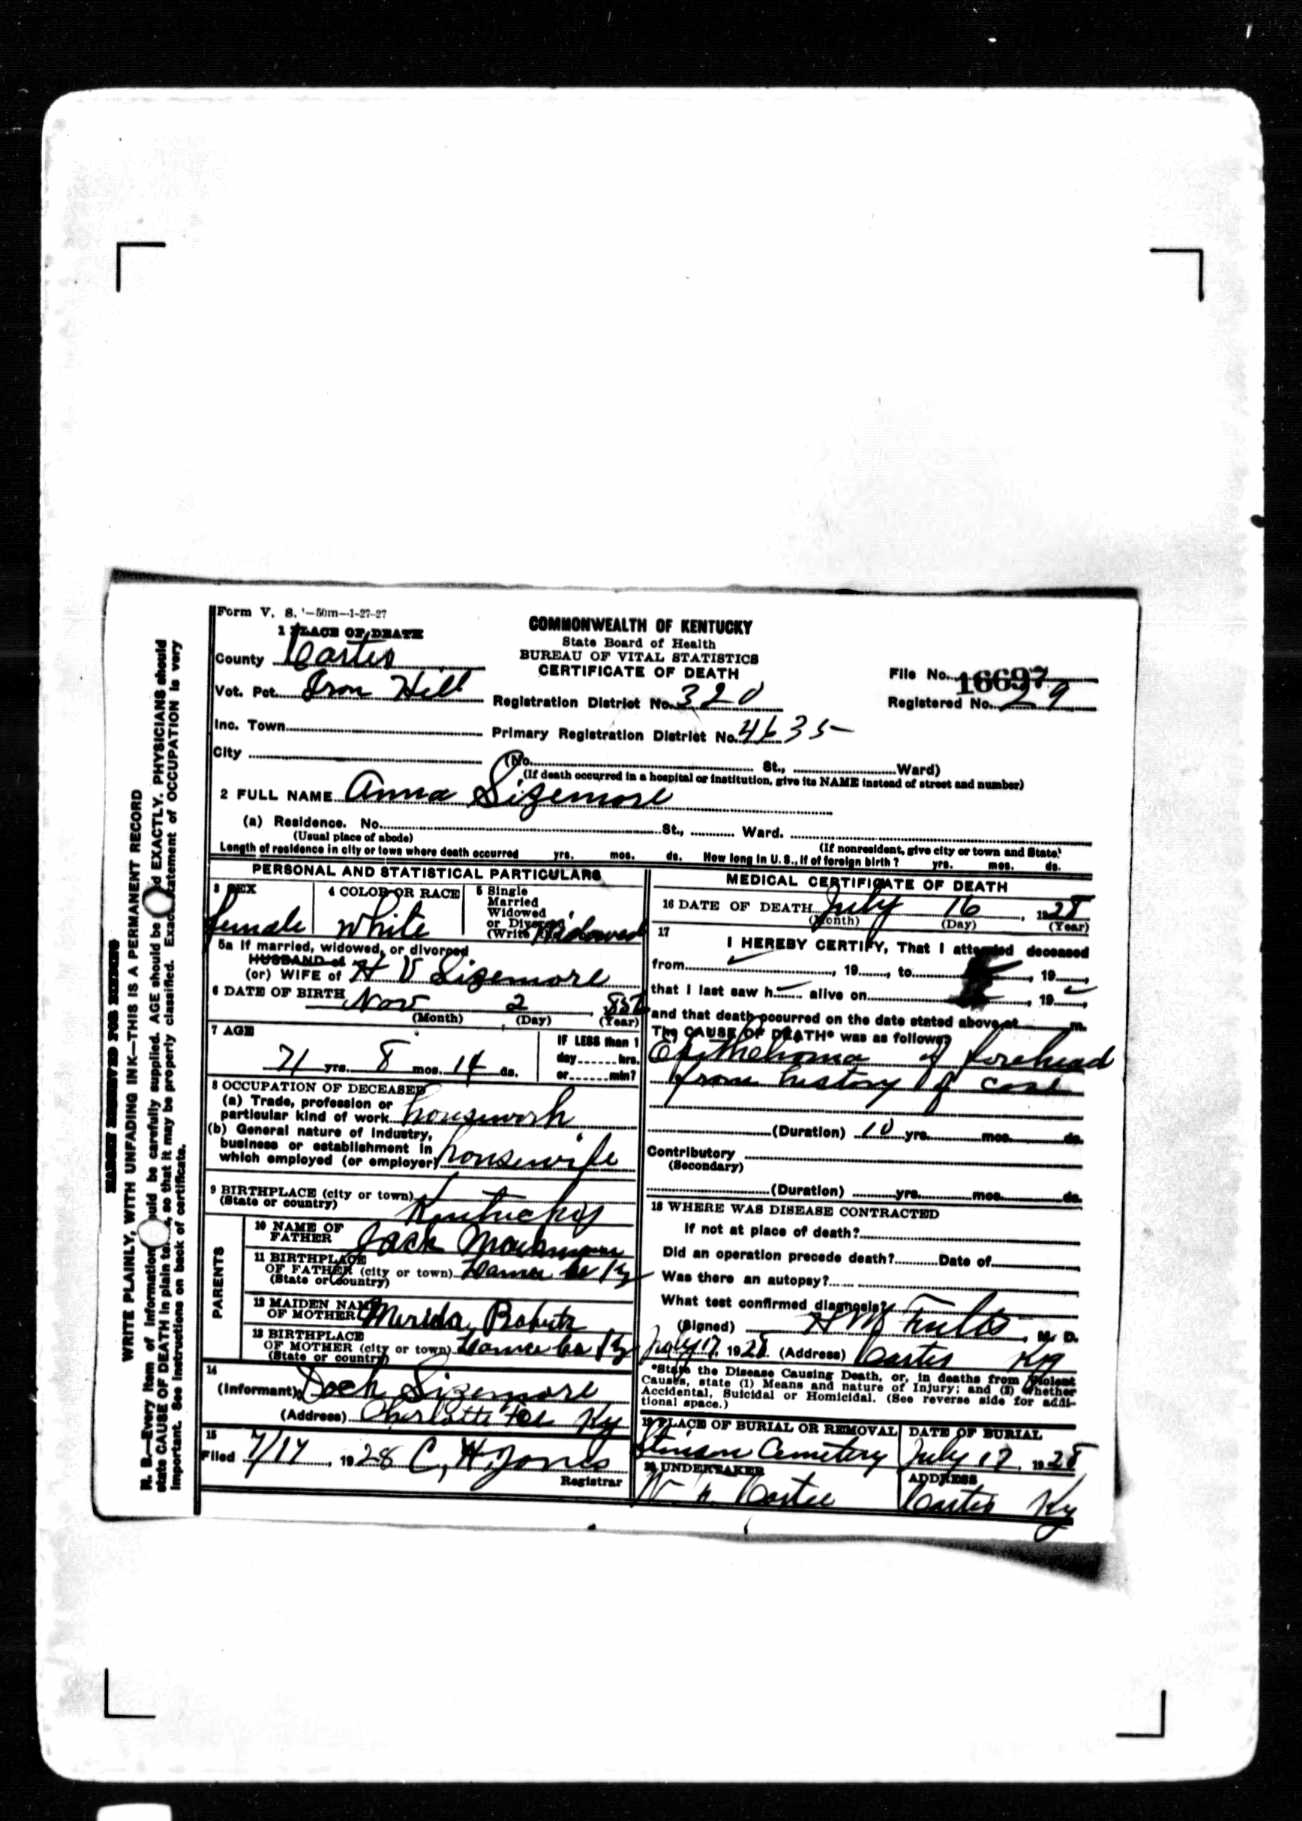 Form V. S. 1—50m—1-27-27
COMMONWEALTH OF KENTUCKY
State Board of Health
BUREAU OF VITAL STATISTICS
CERTIFICATE OF DEATH
1 PLACE OF DEATH
County Carter
Vot. Pct. Iron Hill
Inc. Town
City
Registration District No. 320
Primary Registration District No. 4635
File No. 16697
Registered No. 29
(No. St., Ward)
(If death occurred in a hospital or institution, give its NAME instead of street and number)
2 FULL NAME Anna Sizemore
(a) Residence. No. St., Ward.
(Usual place of abode) (If nonresident, give city or town and State)
Length of residence in city or town where death occurred yrs. mos. ds. How long in U. S., if of foreign birth? yrs. mos. ds.
PERSONAL AND STATISTICAL PARTICULARS
3 SEX female
4 COLOR OR RACE White
5 Single Married Widowed or Divorced (Write Widowed
5a If married, widowed, or divorced
HUSBAND of
(or) WIFE of H V Sizemore
6 DATE OF BIRTH Nov 2
(Month) (Day) (Year)
7 AGE 71 yrs. 8 mos. 14 ds.
IF LESS than 1
day hrs.
or min?
8 OCCUPATION OF DECEASED
(a) Trade, profession or
particular kind of work housework
(b) General nature of industry,
business or establishment in
which employed (or employer) housewife
9 BIRTHPLACE (city or town)
(State or country) Kentucky
PARENTS
10 NAME OF
FATHER Jack
11 BIRTHPLACE
OF FATHER (city or town) Ky
(State or Country)
12 MAIDEN NAME
OF MOTHER
13 BIRTHPLACE
OF MOTHER (city or town) Ky
(State or country)
14
(Informant) Dock Sizemore
(Address) Ky
15
Filed 7/17, 1928 C, H, Jones
Registrar
MEDICAL CERTIFICATE OF DEATH
16 DATE OF DEATH July 16, 1928
(Month) (Day) (Year)
17
I HEREBY CERTIFY, That I attended deceased
from, 19, to, 19
that I last saw h alive on, 19
and that death occurred on the date stated above, at m.
The CAUSE OF DEATH* was as follows:
Epithelioma of forehead
from history of case
(Duration) 10 yrs. mos. ds.
Contributory
(Secondary)
(Duration) yrs. mos. ds.
18 WHERE WAS DISEASE CONTRACTED
If not at place of death?
Did an operation precede death? Date of
Was there an autopsy?
What test confirmed diagnosis?
(Signed) H M Fults, M. D.
July 17, 1928 (Address) Carter Ky
*State the Disease Causing Death, or, in deaths from Violent
Causes, state (1) Means and nature of Injury; and (2) whether
Accidental, Suicidal or Homicidal. (See reverse side for addi-
tional space.)
19 PLACE OF BURIAL OR REMOVAL
Stinson Cemetery
DATE OF BURIAL
July 17, 1928
20 UNDERTAKER
ADDRESS
Carter Ky
MARGIN RESERVED FOR BINDING
WRITE PLAINLY, WITH UNFADING INK—THIS IS A PERMANENT RECORD
N. B.—Every item of information should be carefully supplied. AGE should be stated EXACTLY. PHYSICIANS should
state CAUSE OF DEATH in plain terms, so that it may be properly classified. Exact statement of OCCUPATION is very
important. See instructions on back of certificate.